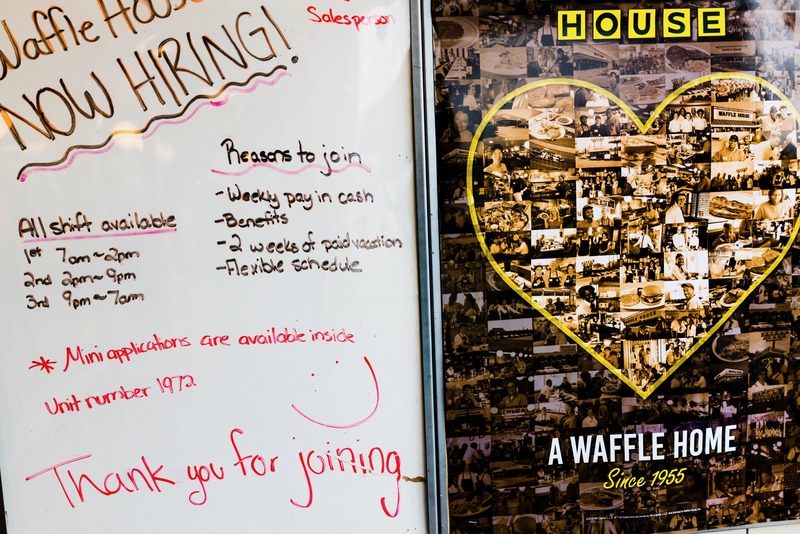 Waffle House
NOW HIRING!
Salesperson
Reasons to join
-Weekly pay in cash
-Benefits
-2 weeks of paid vacation
-Flexible schedule
All shift available
1st 7am~2pm
2nd 2pm~9pm
3rd 9pm~7am
* Mini applications are available inside
Unit number 1972
Thank you for joining
HOUSE
WAFFLE HOUSE
A WAFFLE HOME
Since 1955